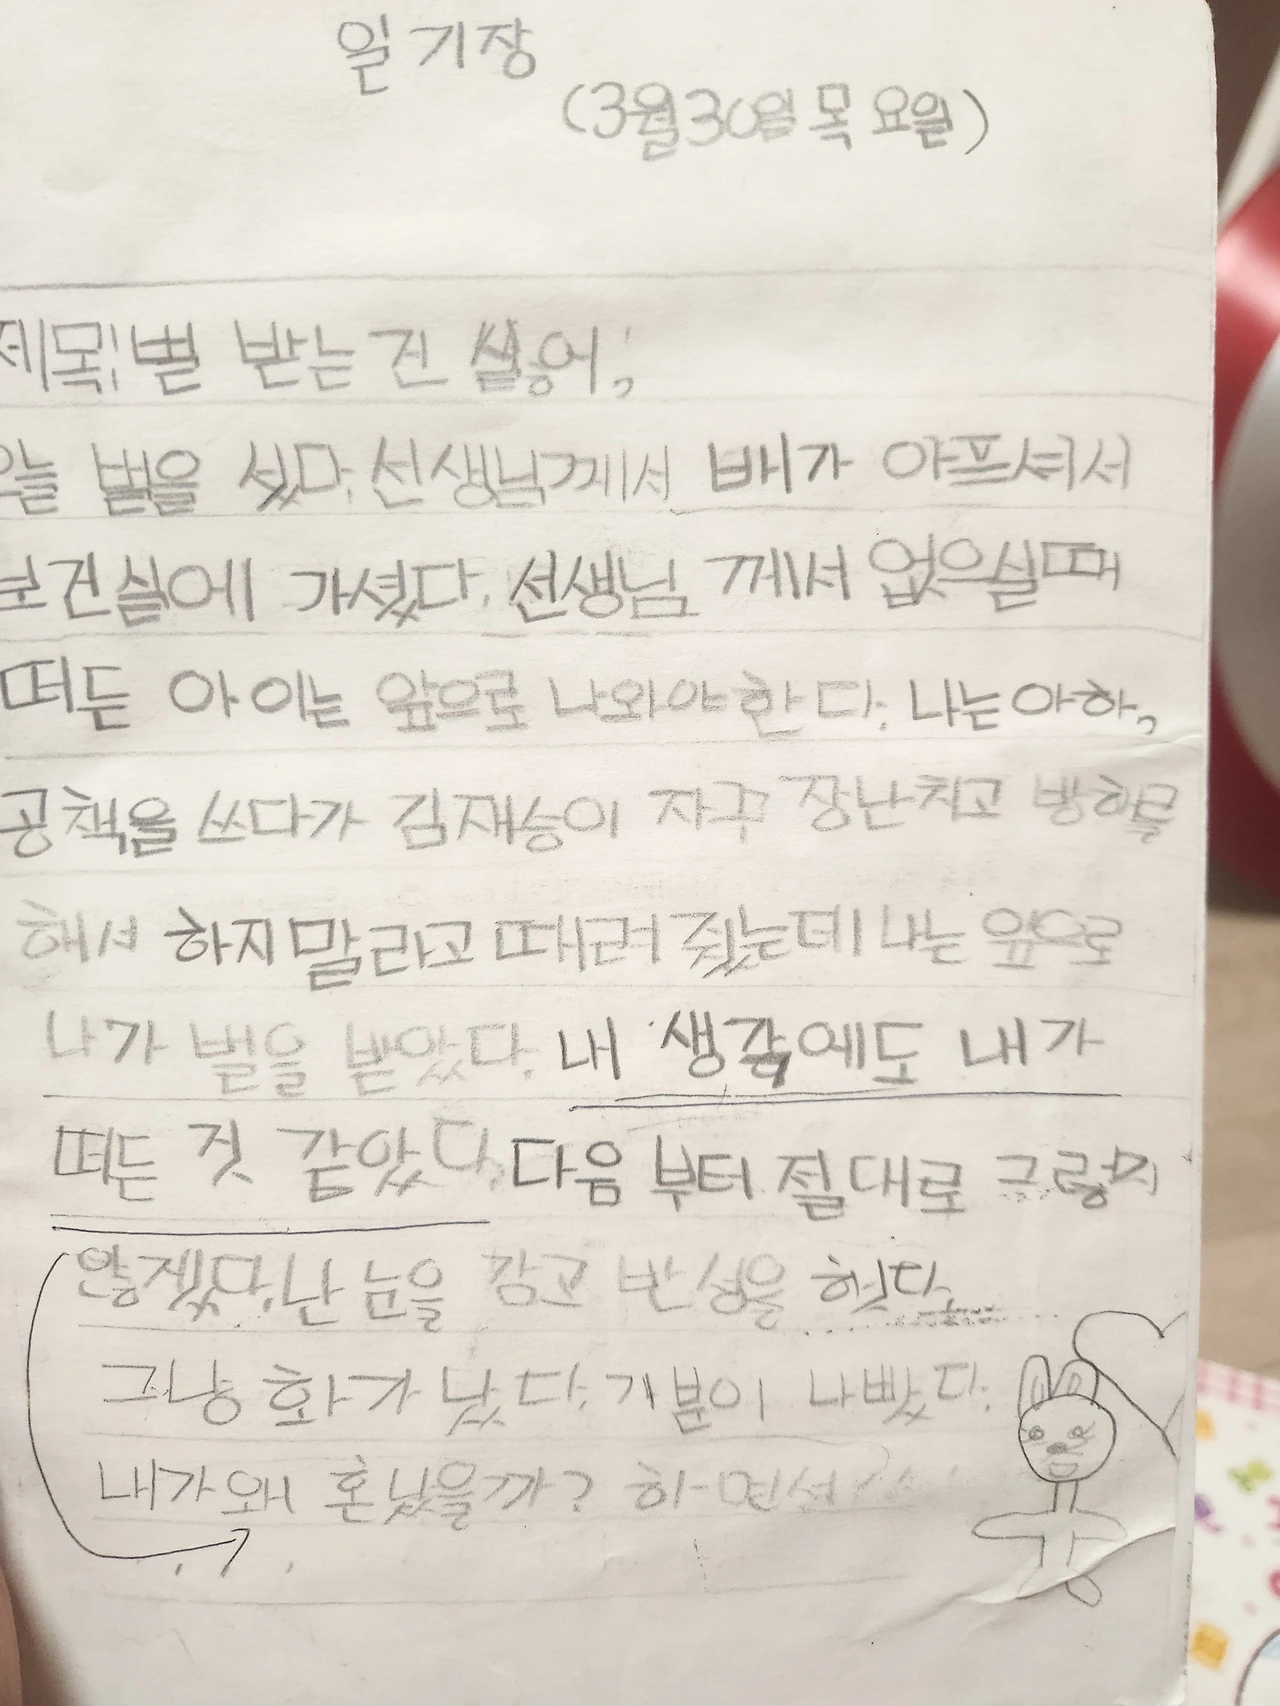 일기장
(3월30일 목요일)
제목: 벌 받는 건 싫어,
오늘 벌을 섰다. 선생님께서 배가 아프셔서
보건실에 가셨다. 선생님 께서 없으실때
떠든 아이는 앞으로 나와야한다. 나는 아하,
공책을 쓰다가 김재승이 자꾸 장난치고 방해를
해서 하지말라고 때려 줬는데 나는 앞으로
나가 벌을 받았다. 내 생각에도 내가
떠든 것 같았다. 다음 부터 절대로 그렇지
않겠다. 난 눈을 감고 반성을 했다.
그냥 화가 났다. 기분이 나빴다.
내가 왜 혼났을까? 하면서